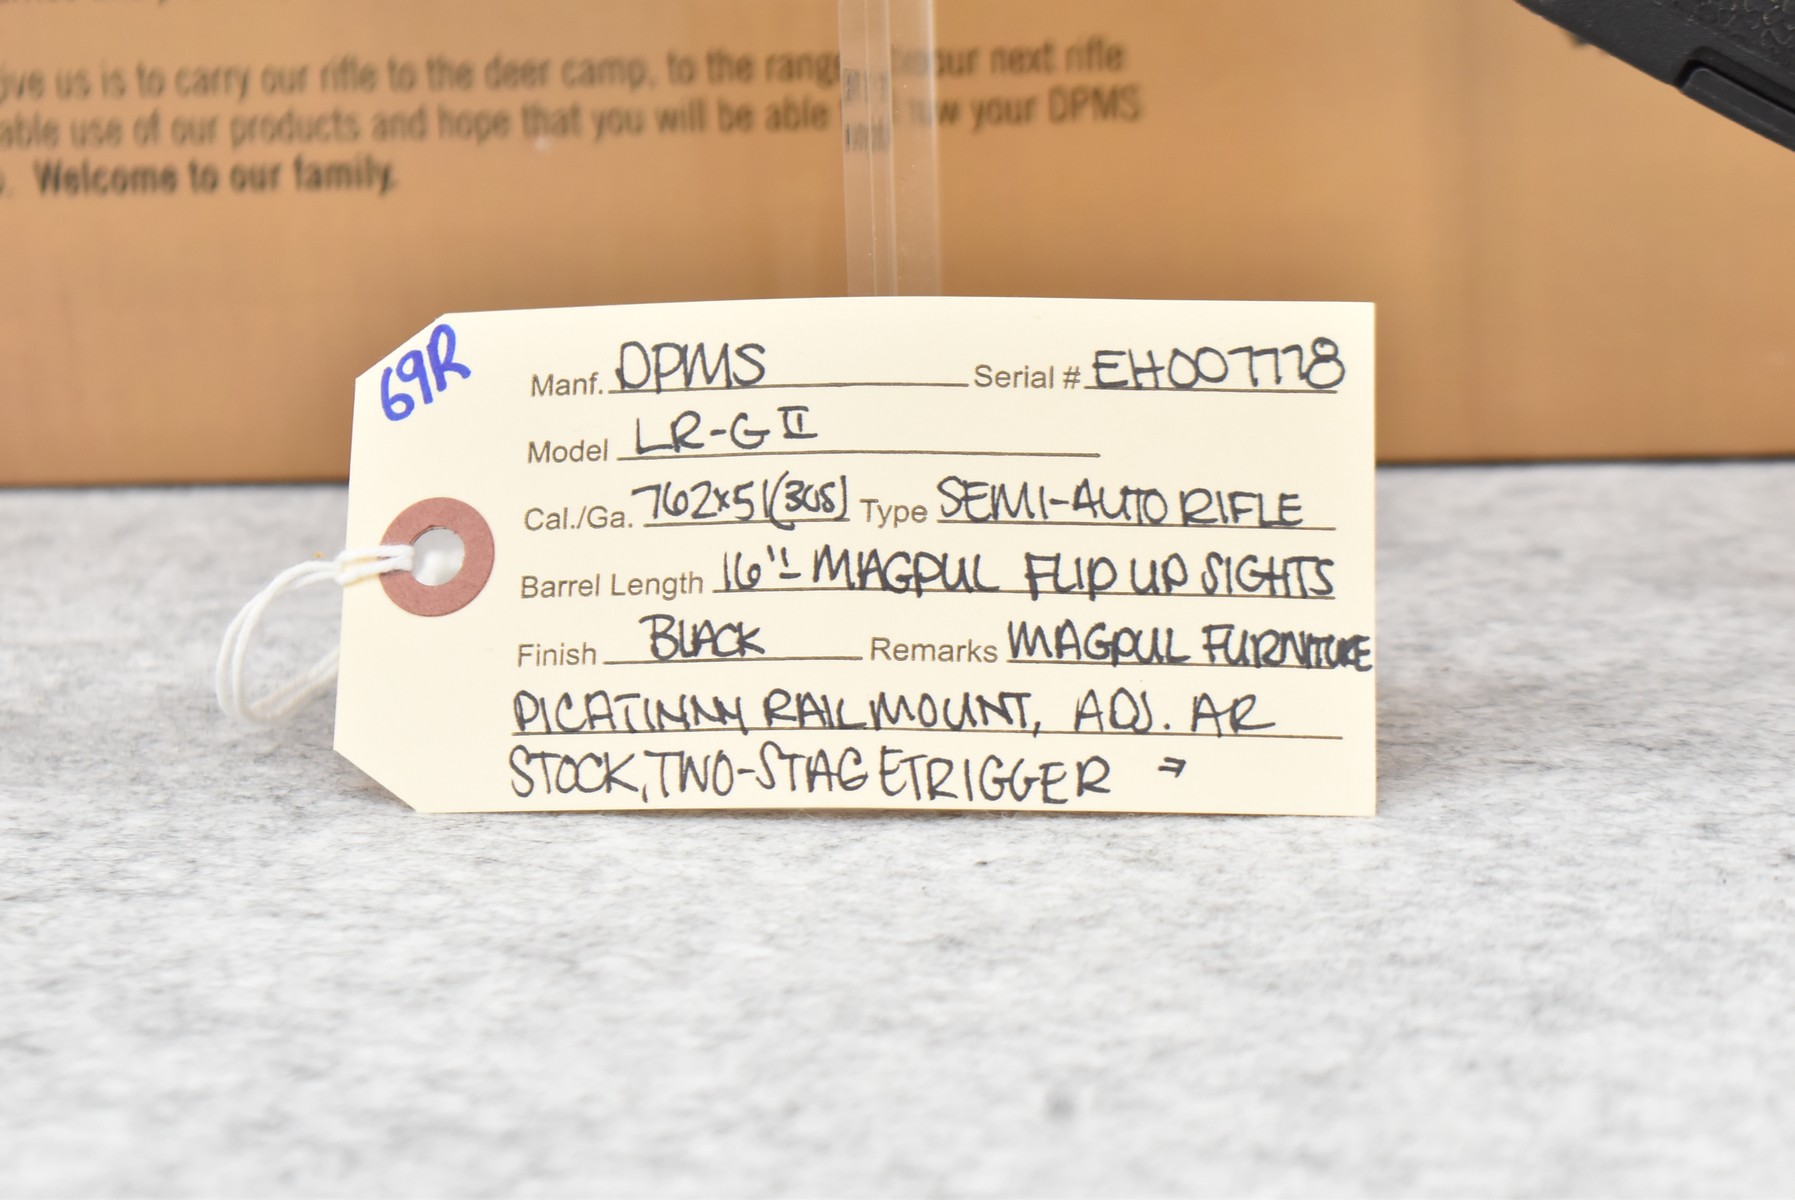 give us is to carry our rifle to the deer camp, to the range our next rifle
able use of our products and hope that you will be able your DPMS
Welcome to our family.
69R
Manf. DPMS Serial # EH007778
Model LR-G II
Cal./Ga. 762x51(308) Type SEMI-AUTO RIFLE
Barrel Length 16"- MAGPUL FLIP UP SIGHTS
Finish BLACK Remarks MAGPUL FURNITURE
PICATINNY RAIL MOUNT, ADJ. AR
STOCK, TWO-STAGE TRIGGER →